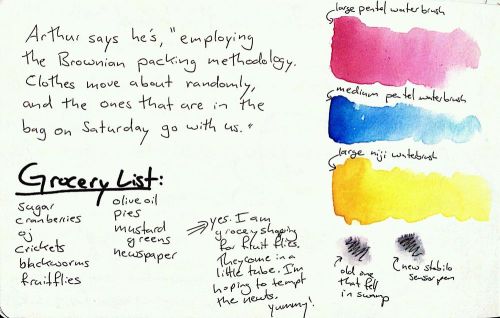 Arthur says he's, "employing
the Brownian packing methodology.
Clothes move about randomly,
and the ones that are in the
bag on Saturday go with us."
Grocery List:
sugar
cranberries
oj
crickets
blackworms
fruitflies
olive oil
pies
mustard
greens
newspaper
yes. I am
grocery shopping
for fruit flies.
They come in a
little tube. I'm
hoping to tempt
the newts.
yummy!
large pentel waterbrush
medium pentel waterbrush
large niji waterbrush
old one
that fell
in swamp
new stabilo
sensor pen